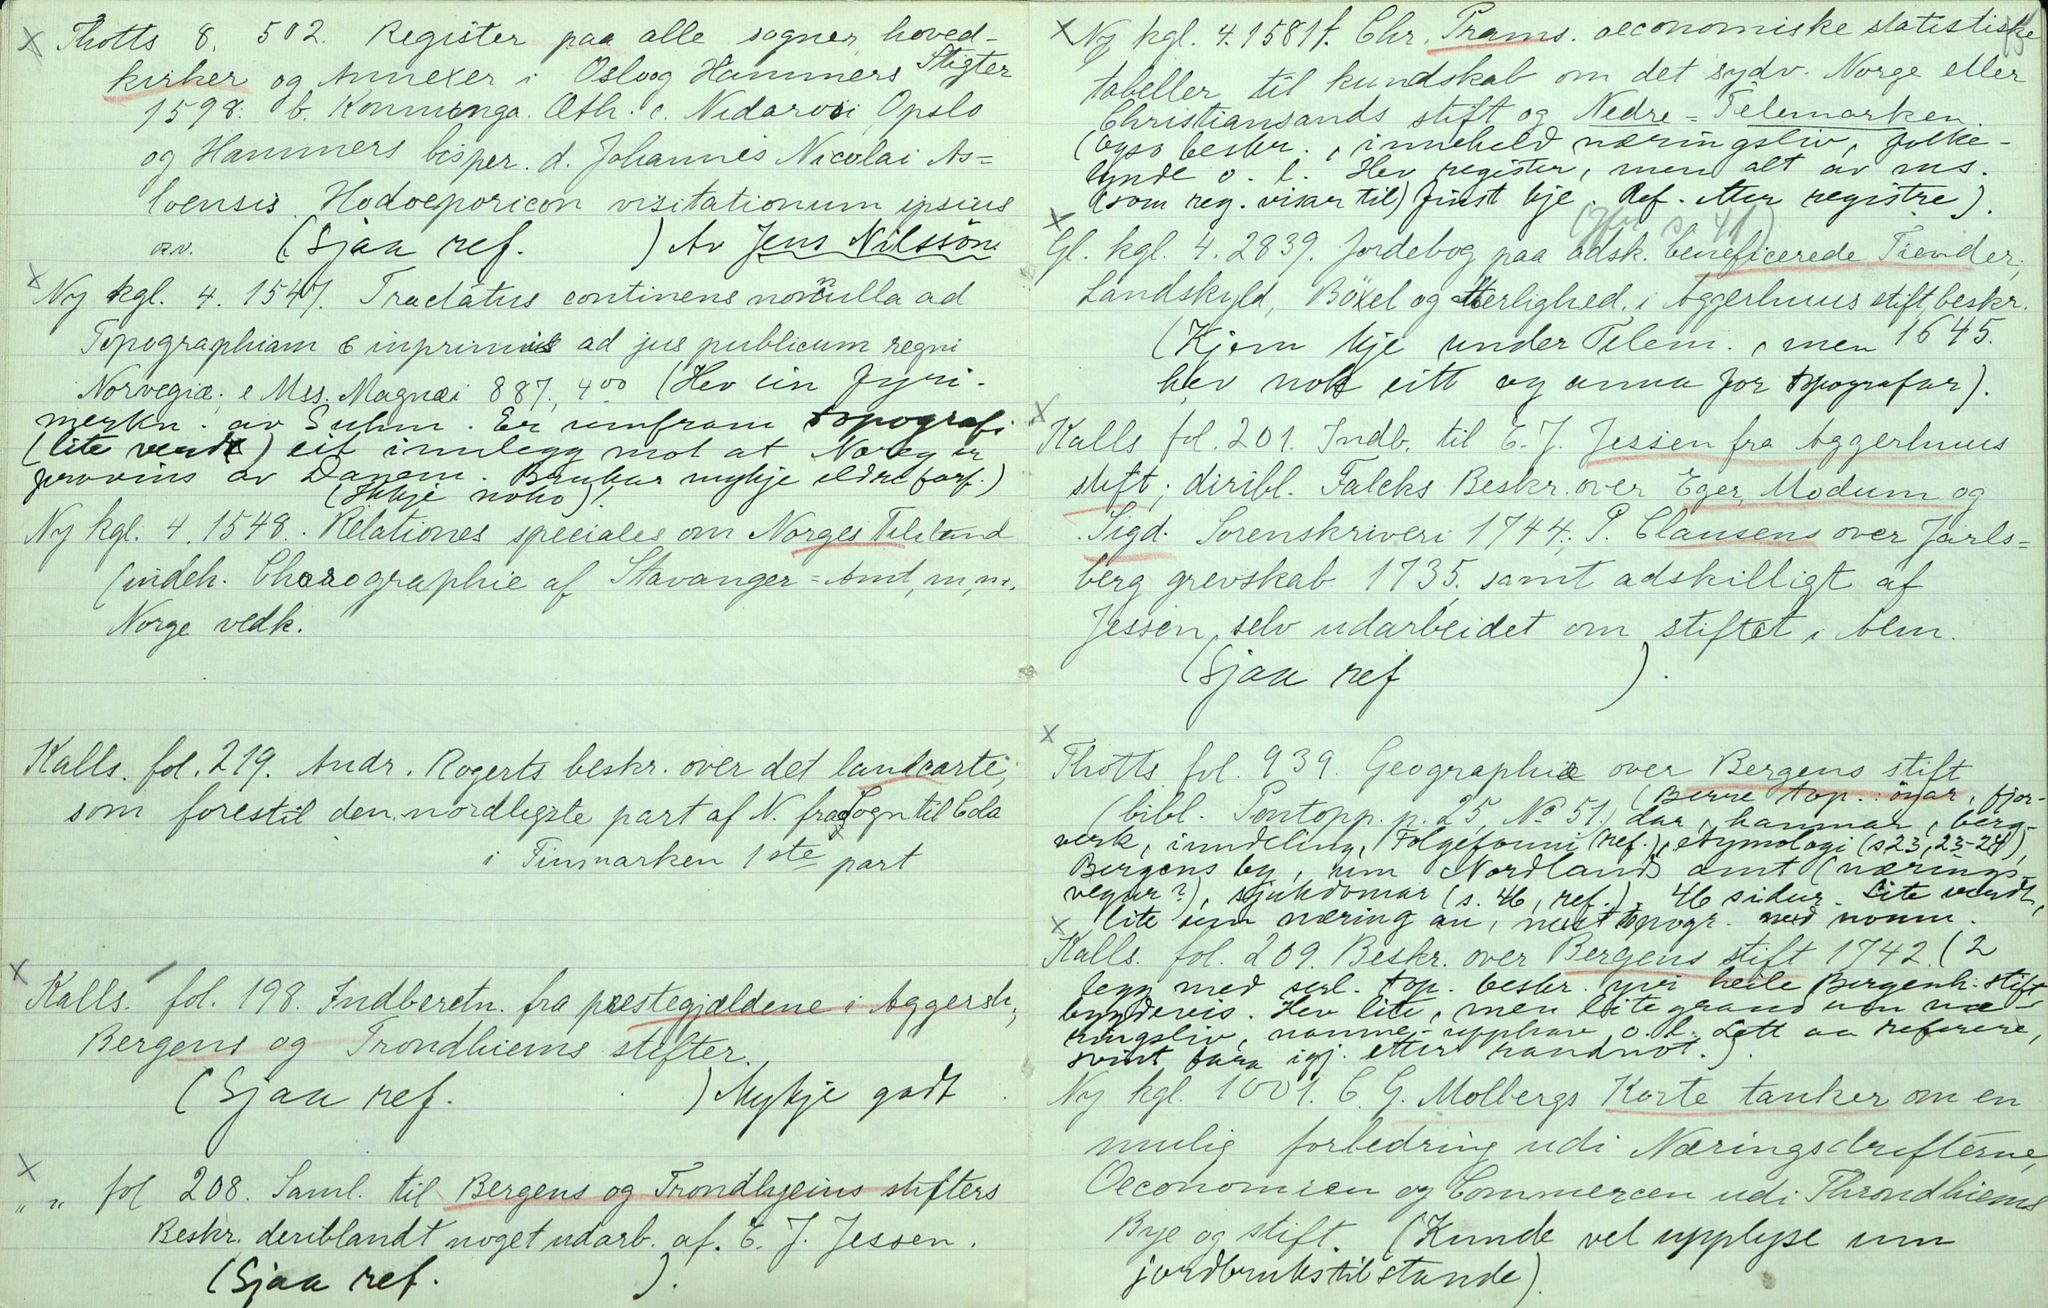 x Thotts 8. 502. Register paa alle sogner, hoved-
kirker og Annexer i Oslo og Hammers Stigter
1598. b. Konnunga. Æth. c. Nidarosi, Opslo
og Hammers bisper. d. Johannis Nicolai As-
loensis Hodoeporicon visitationum ipsius
o.v. (Sjaa ref. ) Av Jens Nilssøn
x Ny kgl. 4. 1547. Tractatus continens nonnulla ad
Topographiam & inprimis ad jus publicum regni
Norvegiæ; e Mss. Magnæi 887, 4to (Hev ein fyri-
merkn. av Suhm. Er umfram topografi
(lite verdt) eit innlegg mot at Noreg er
provins av Danm. Brukar mykje eldre forf.)
(Ikkje noko)!
Ny kgl. 4. 1548. Relationes speciales om Norges Tilstand
(indeh. Chorographie af Stavanger=Amt, m, m.
Norge vedk.
Kalls. fol. 219. Andr. Rogerts beskr. over det landcarte,
som forestil den nordligste part af N. fra Sogn til Cola
i Finmarken 1ste part
x Kalls. fol. 198. Indberetn. fra prestegjældene i Aggersh.,
Bergens og Trondhiems stifter.
(Sjaa ref. ) Mykje godt
x " " fol 208. Saml. til Bergens og Trondhjeins stifters
Beskr. deriblandt noget udarb. af E. J. Jessen.
(Sjaa ref. ).
x Ny kgl. 4. 1581 f. Chr. Prams. oeconomiske statistiske
tabeller til kundskab om det sydv. Norge eller
Christiansands stift og Nedre=Telemarken.
(ogso beskr., inneheld næringsliv, folke-
lynde o. l. Hev register, men alt av ms.
(som reg. viser til) finst kje. Ref. etter registre).
(Jfr s. 41)
x Gl. kgl. 4. 2839. Jordebog paa adsk. beneficerede Tiender,
Landskyld, Böxel og Herlighed i Aggerhuus stift, beskr.
1645.
(Kjem kje under Telem., men
hev nok eitt og anna for topografar).
x Kalls fol. 201. Indb. til E. J. Jessen fra Aggerhuus
stift; diribl. Falcks Beskr. over Eger, Modum og
Sigd. Sorenskriveri 1744; P. Clausens over Jarls=
berg grevskab 1735, samt adskilligt af
Jessen selv udarbeidet om stiftet i Alm.
(Sjaa ref ).
x Thotts fol. 939. Geographie over Bergens stift
(bibl. Pontopp. p. 25, No 51.) (Berre top.: öyar, fjor-
dar, hamnar, berg-
verk, inndeling, Folgefonni (ref.), etymologi (s 23, 23-24),
Bergens by, um Nordlands amt (nærings-
vegur?), sjukdomar (s. 46, ref.). 46 sidur. Lite verdt,
lite um næring an, mest topogr. med nomn.
x Kalls. fol. 209. Beskr. over Bergens stift 1742. (2
legg med serl. top. beskr. yvir heile Bergenh. stift
bygdevis. Hev lite, men lite grand um næ-
ringsliv, namne-upphav o. l. Lett aa referere,
svint fara igj. etter randnot.).
Ny kgl. 1001. C. G. Molbergs Korte tanker om en
mulig forbedring udi Næringsdrifterne,
Oeconomien og Commercen udi Throndhiems
Bye og stift. (Kunde vel upplyse um
jordbrukstilstande).